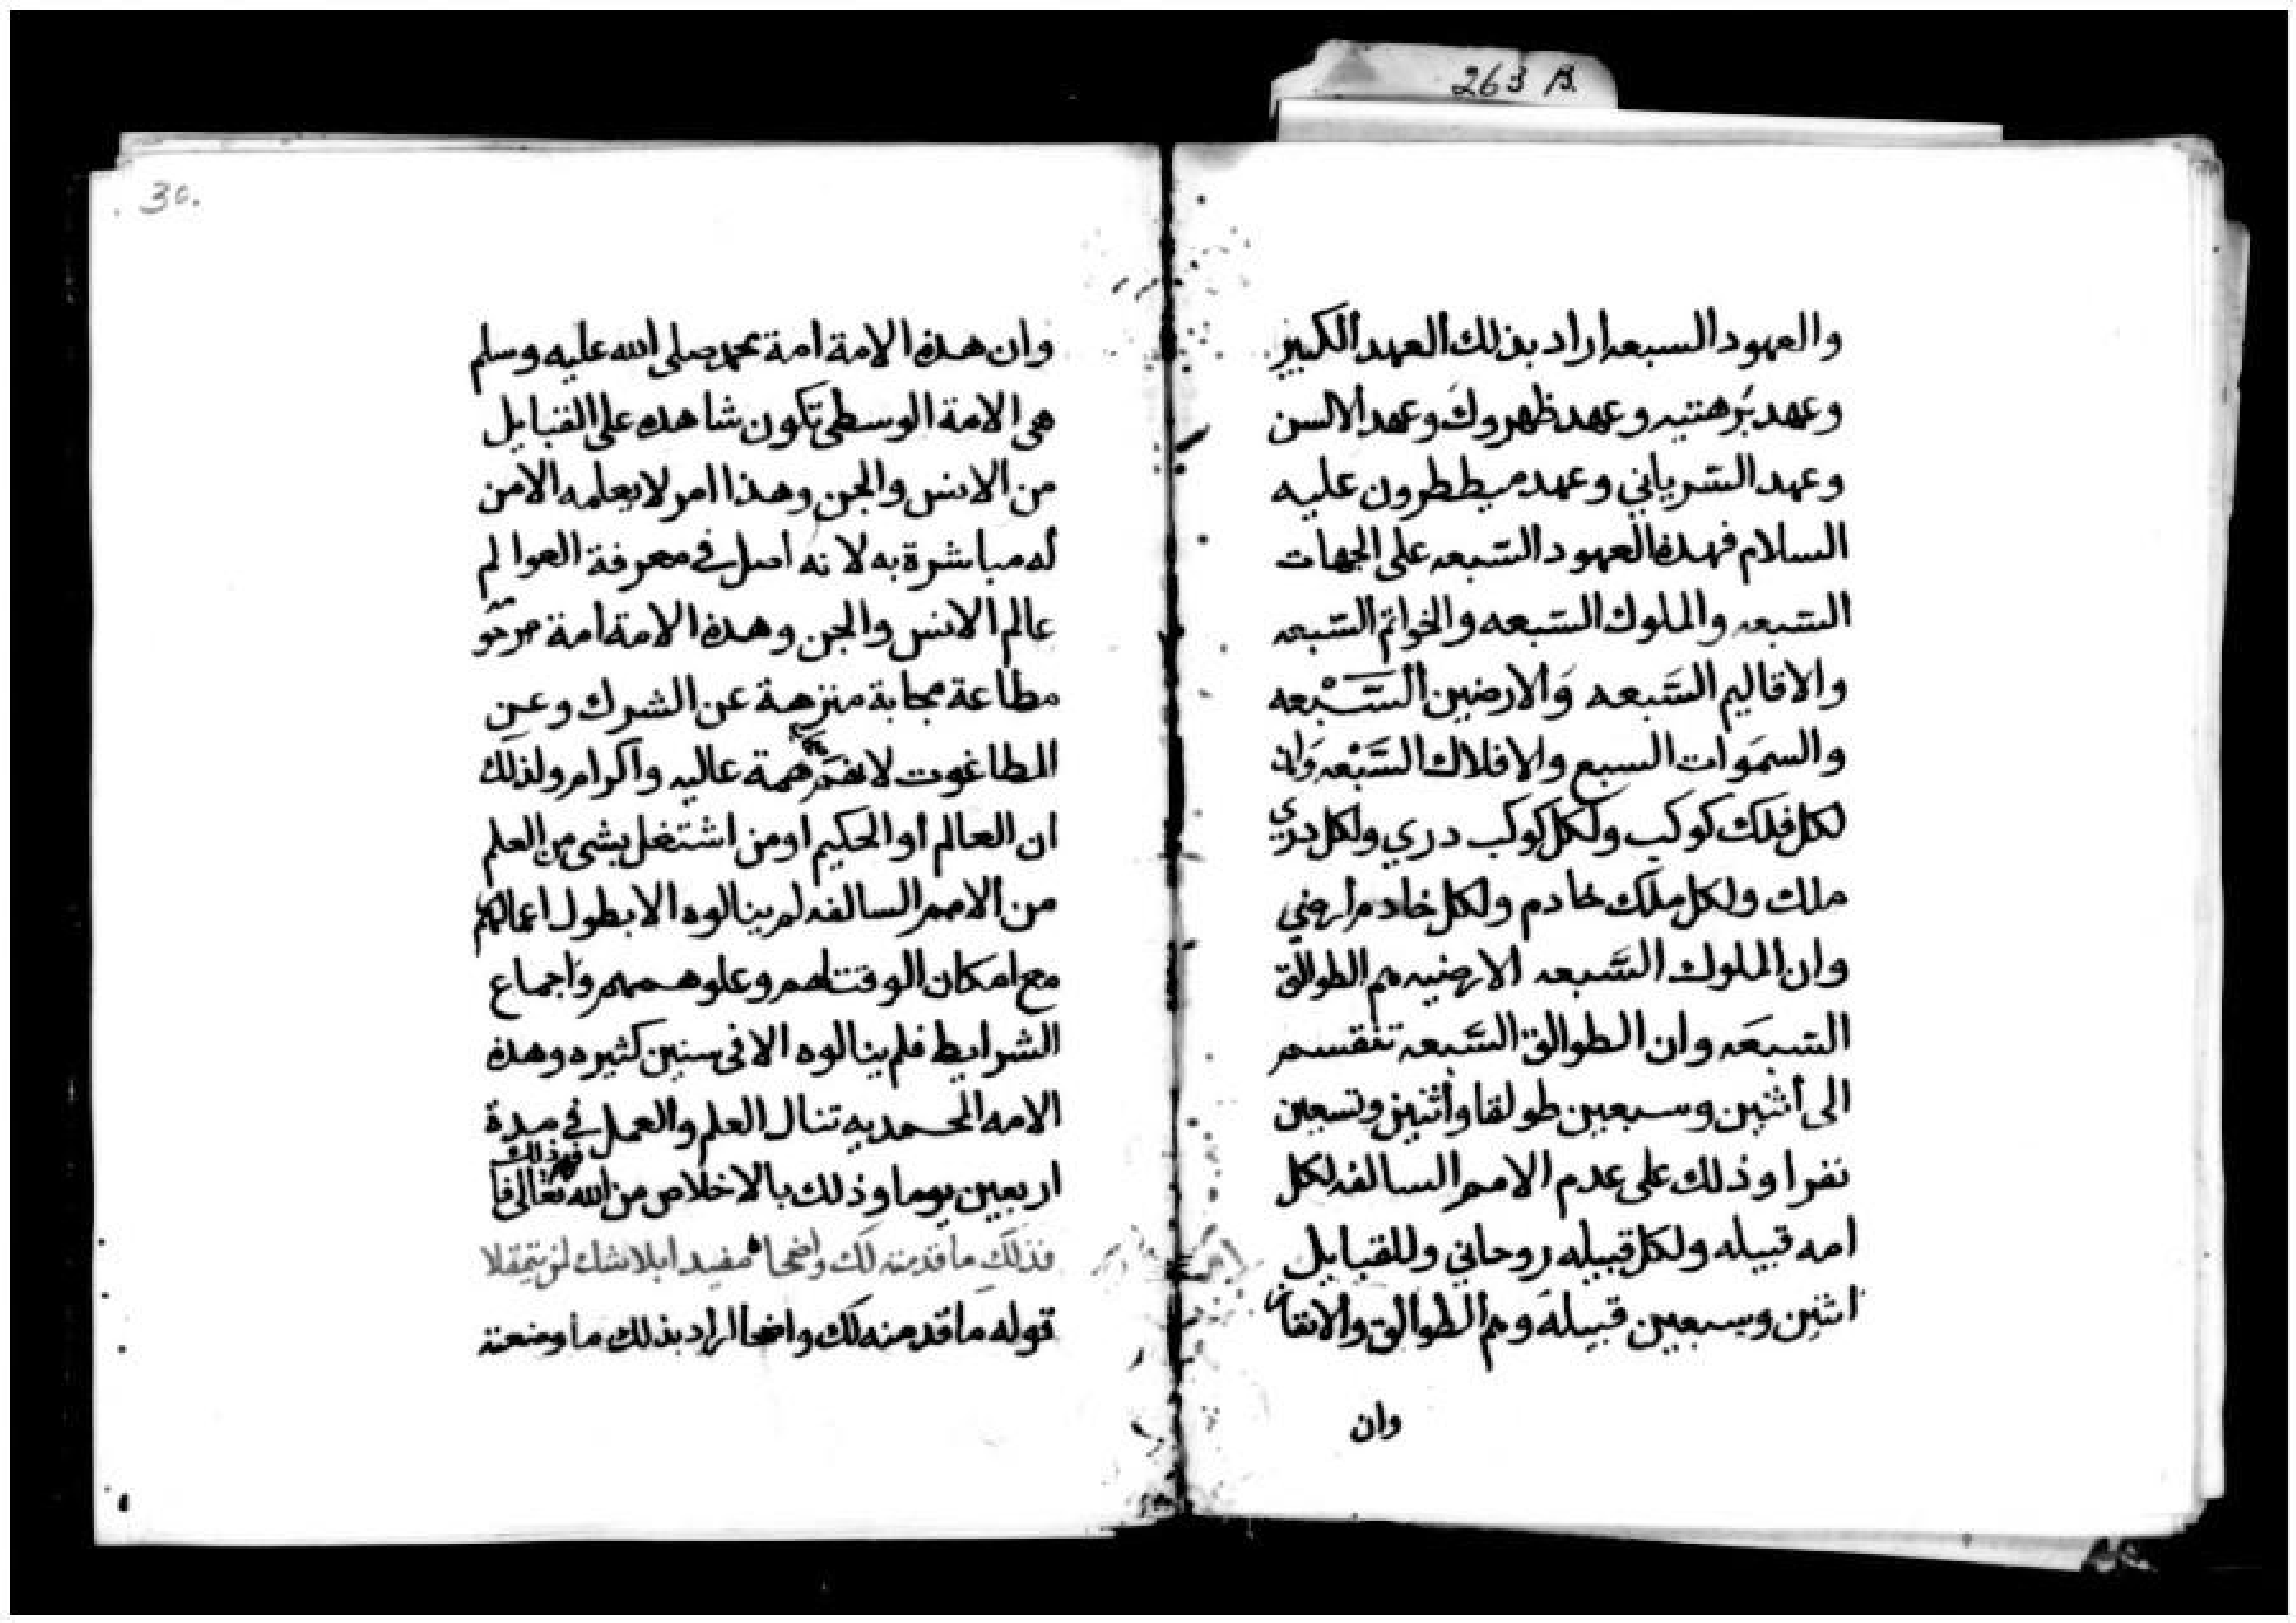 263 B.
والعهود السبعه اراد بذلك العهد الكبير
وعهد بَرهتيه وعهد ظهروك وعهد الالسن
وعهد السرياني وعهد ميططرون عليه
السلام فهذه العهود السبعه على الجهات
السبعه والملوك السبعه والخواتم السبعه
والاقاليم السَّبعه وَالارضين السَّبْعه
والسمَوات السبع والافلاك السَّبْعه وان
لكل فلك كوكب ولكل كوكب دري ولكل دري
ملك ولكل ملك خادم ولكل خادم أرضي
وان الملوك السَّبعه الارضيه هم الطوالق
السبعَه وان الطوالق السَّبعه تنقسم
الى أثنين وسبعين طولقا وأثنين وتسعين
نفرا وذلك على عدم الامم السالفه لكل
امه قبيله ولكل قبيله روحاني وللقبايل
اثنين وسبعين قبيله وهم الطوالق والانفار
وان
30.
وان هذه الامة امة محمد صلى الله عليه وسلم
هي الامة الوسطى تكون شاهده على القبايل
من الانس والجن وهذا امر لا يعلمه الا من
له مباشرة به لانه اصل في معرفة العوالم
عالم الانس والجن وهذه الامة أمة مرحو
مة
مطاعة مجابة منزهة عن الشرك وعن
الطاغوت لانهم همة عاليه واكرام ولذلك
ان العالم أو الحكيم او من اشتغل بشي من العلم
من الامم السالفه لم ينالوه الا بطول اعمالهم
مع امكان الوقت لهم وعلو هممهم واجماع
الشرايط فلم ينالوه الا في سنين كثيره وهذه
الامه المحمديه تنال العلم والعمل في مدة
اربعين يوما وذلك بالاخلاص من الله تعالى
فذلك ما قد منه لك واضحا مفيدا بلا شك
قوله ما قد منه لك واضحا اراد بذلك ما وضعته